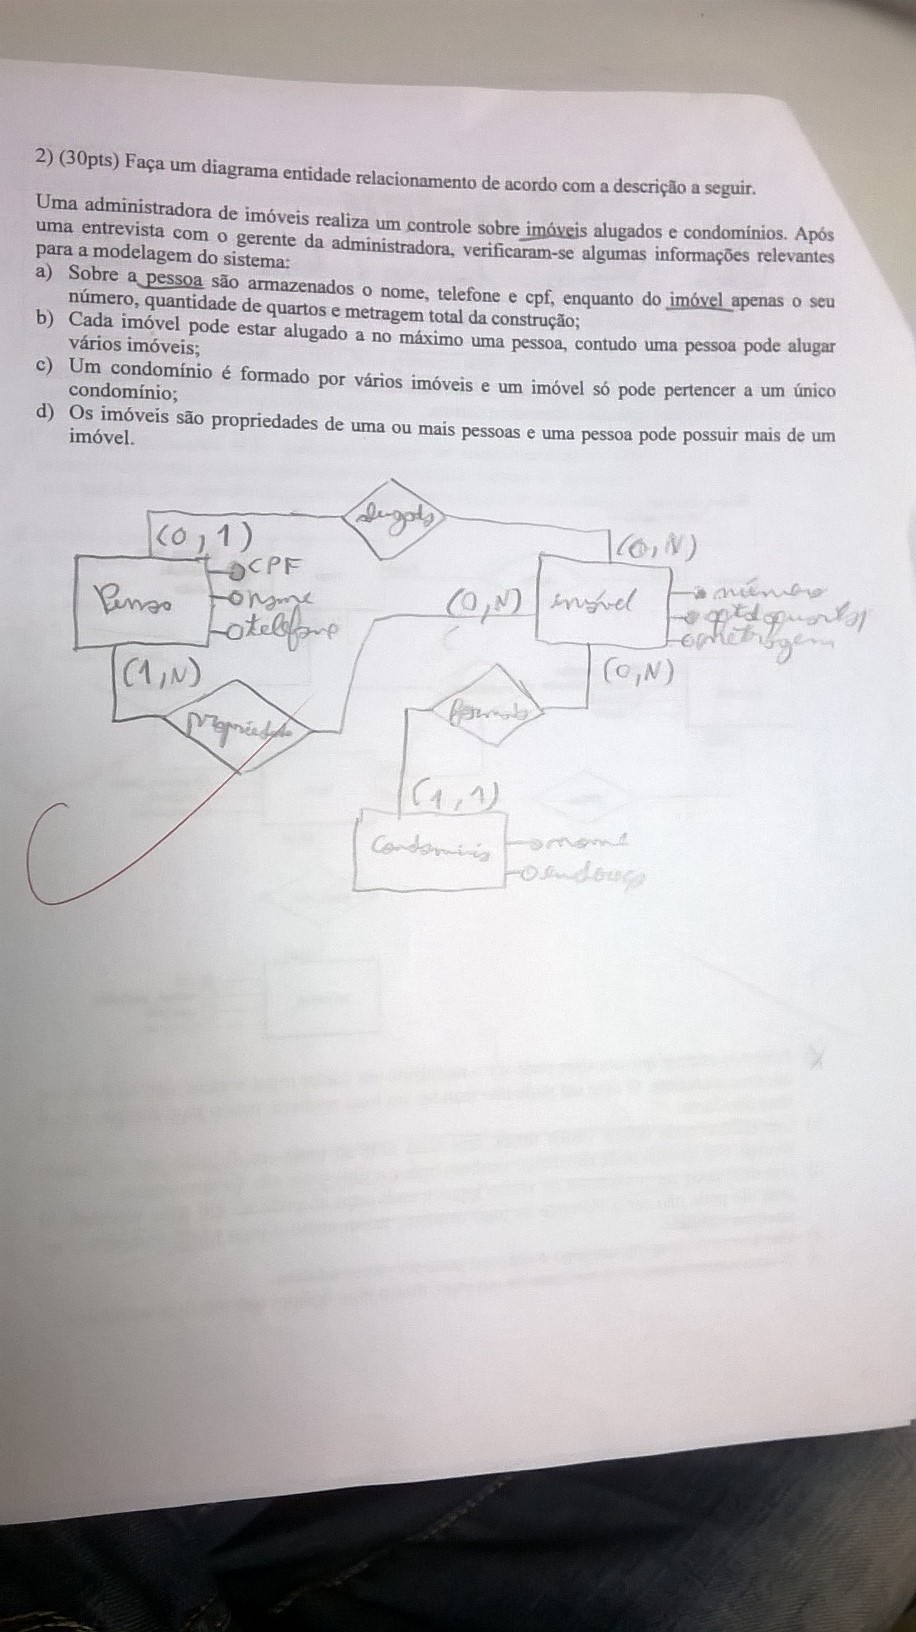 2) (30pts) Faça um diagrama entidade relacionamento de acordo com a descrição a seguir.
Uma administradora de imóveis realiza um controle sobre imóveis alugados e condomínios. Após
uma entrevista com o gerente da administradora, verificaram-se algumas informações relevantes
para a modelagem do sistema:
a) Sobre a pessoa são armazenados o nome, telefone e cpf, enquanto do imóvel apenas o seu
número, quantidade de quartos e metragem total da construção;
b) Cada imóvel pode estar alugado a no máximo uma pessoa, contudo uma pessoa pode alugar
vários imóveis;
c) Um condomínio é formado por vários imóveis e um imóvel só pode pertencer a um único
condomínio;
d) Os imóveis são propriedades de uma ou mais pessoas e uma pessoa pode possuir mais de um
imóvel.
(0,1)
(0,N)
CPF
nome
telefone
(0,N)
imóvel
número
metragem
(1,N)
(0,N)
(1,1)
Condominio
nome